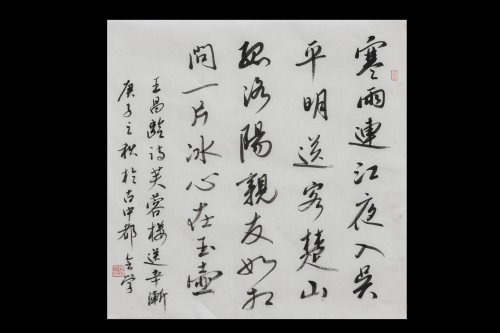 寒雨連江夜入吳
平明送客楚山
孤洛陽親友如相
問一片冰心在玉壺
王昌齡詩芙蓉樓送辛漸
庚子之秋於古中都